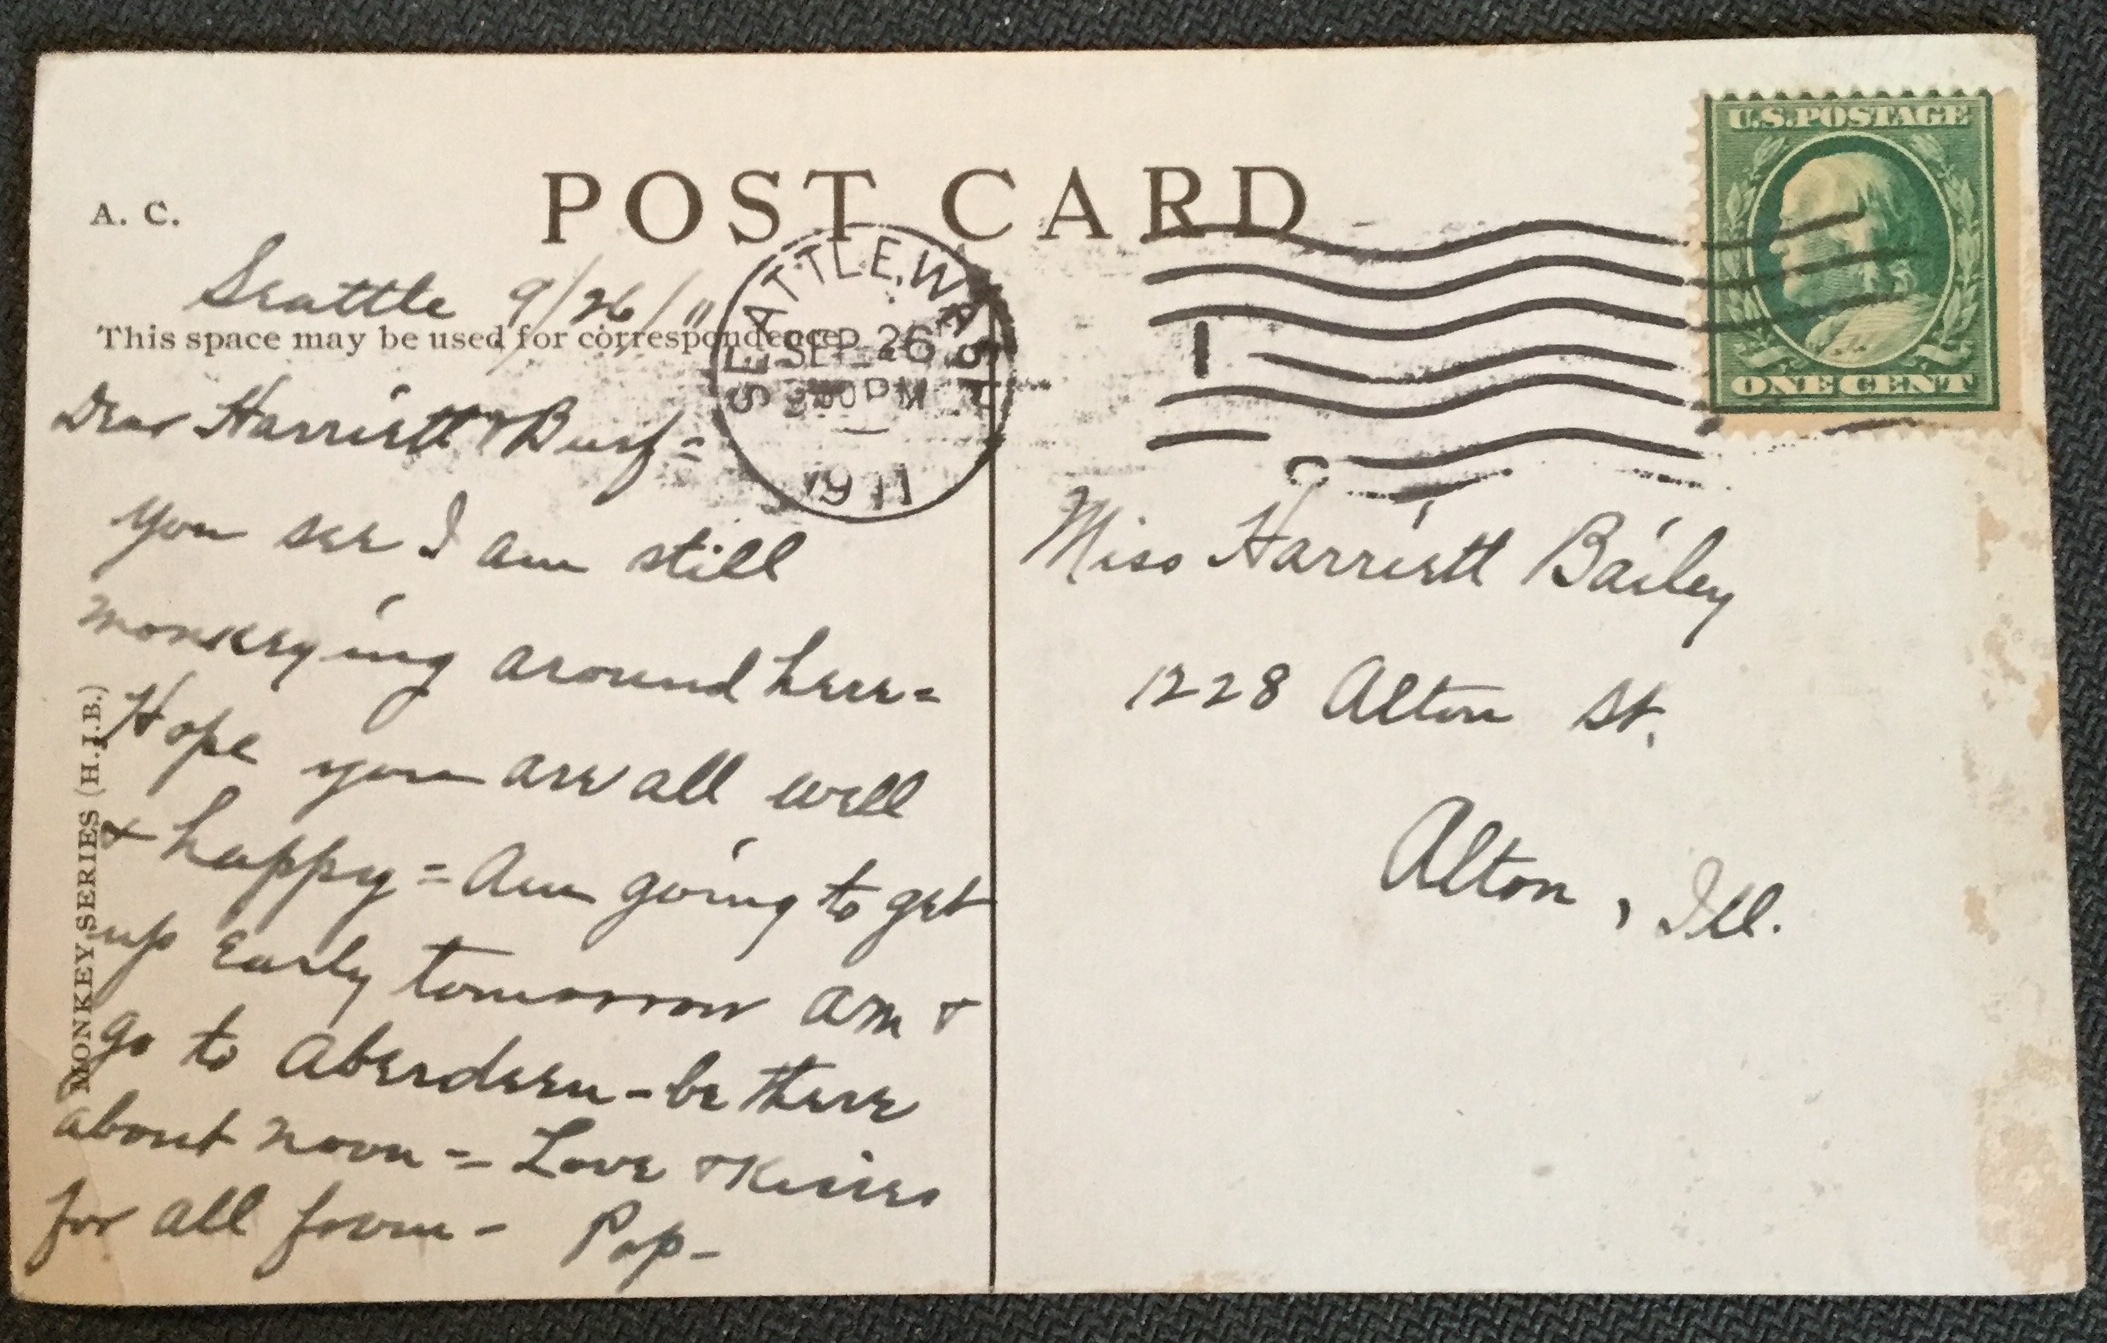 POST CARD
A. C.
U.S. POSTAGE
ONE CENT
SEATTLE, WASH.
SEP 26
30 PM
1911
Seattle 9/26/11
This space may be used for correspondence
Dear Harriett &
You see I am still
monkeying around here =
Hope you are all well
& happy = Am going to get
up Early tomorrow am &
go to Aberdeen - be there
about noon = Love & Kisses
for all from - Pop -
MONKEY SERIES (H.I.B.)
Miss Harriett Bailey
1228 Alton St.
Alton, Ill.